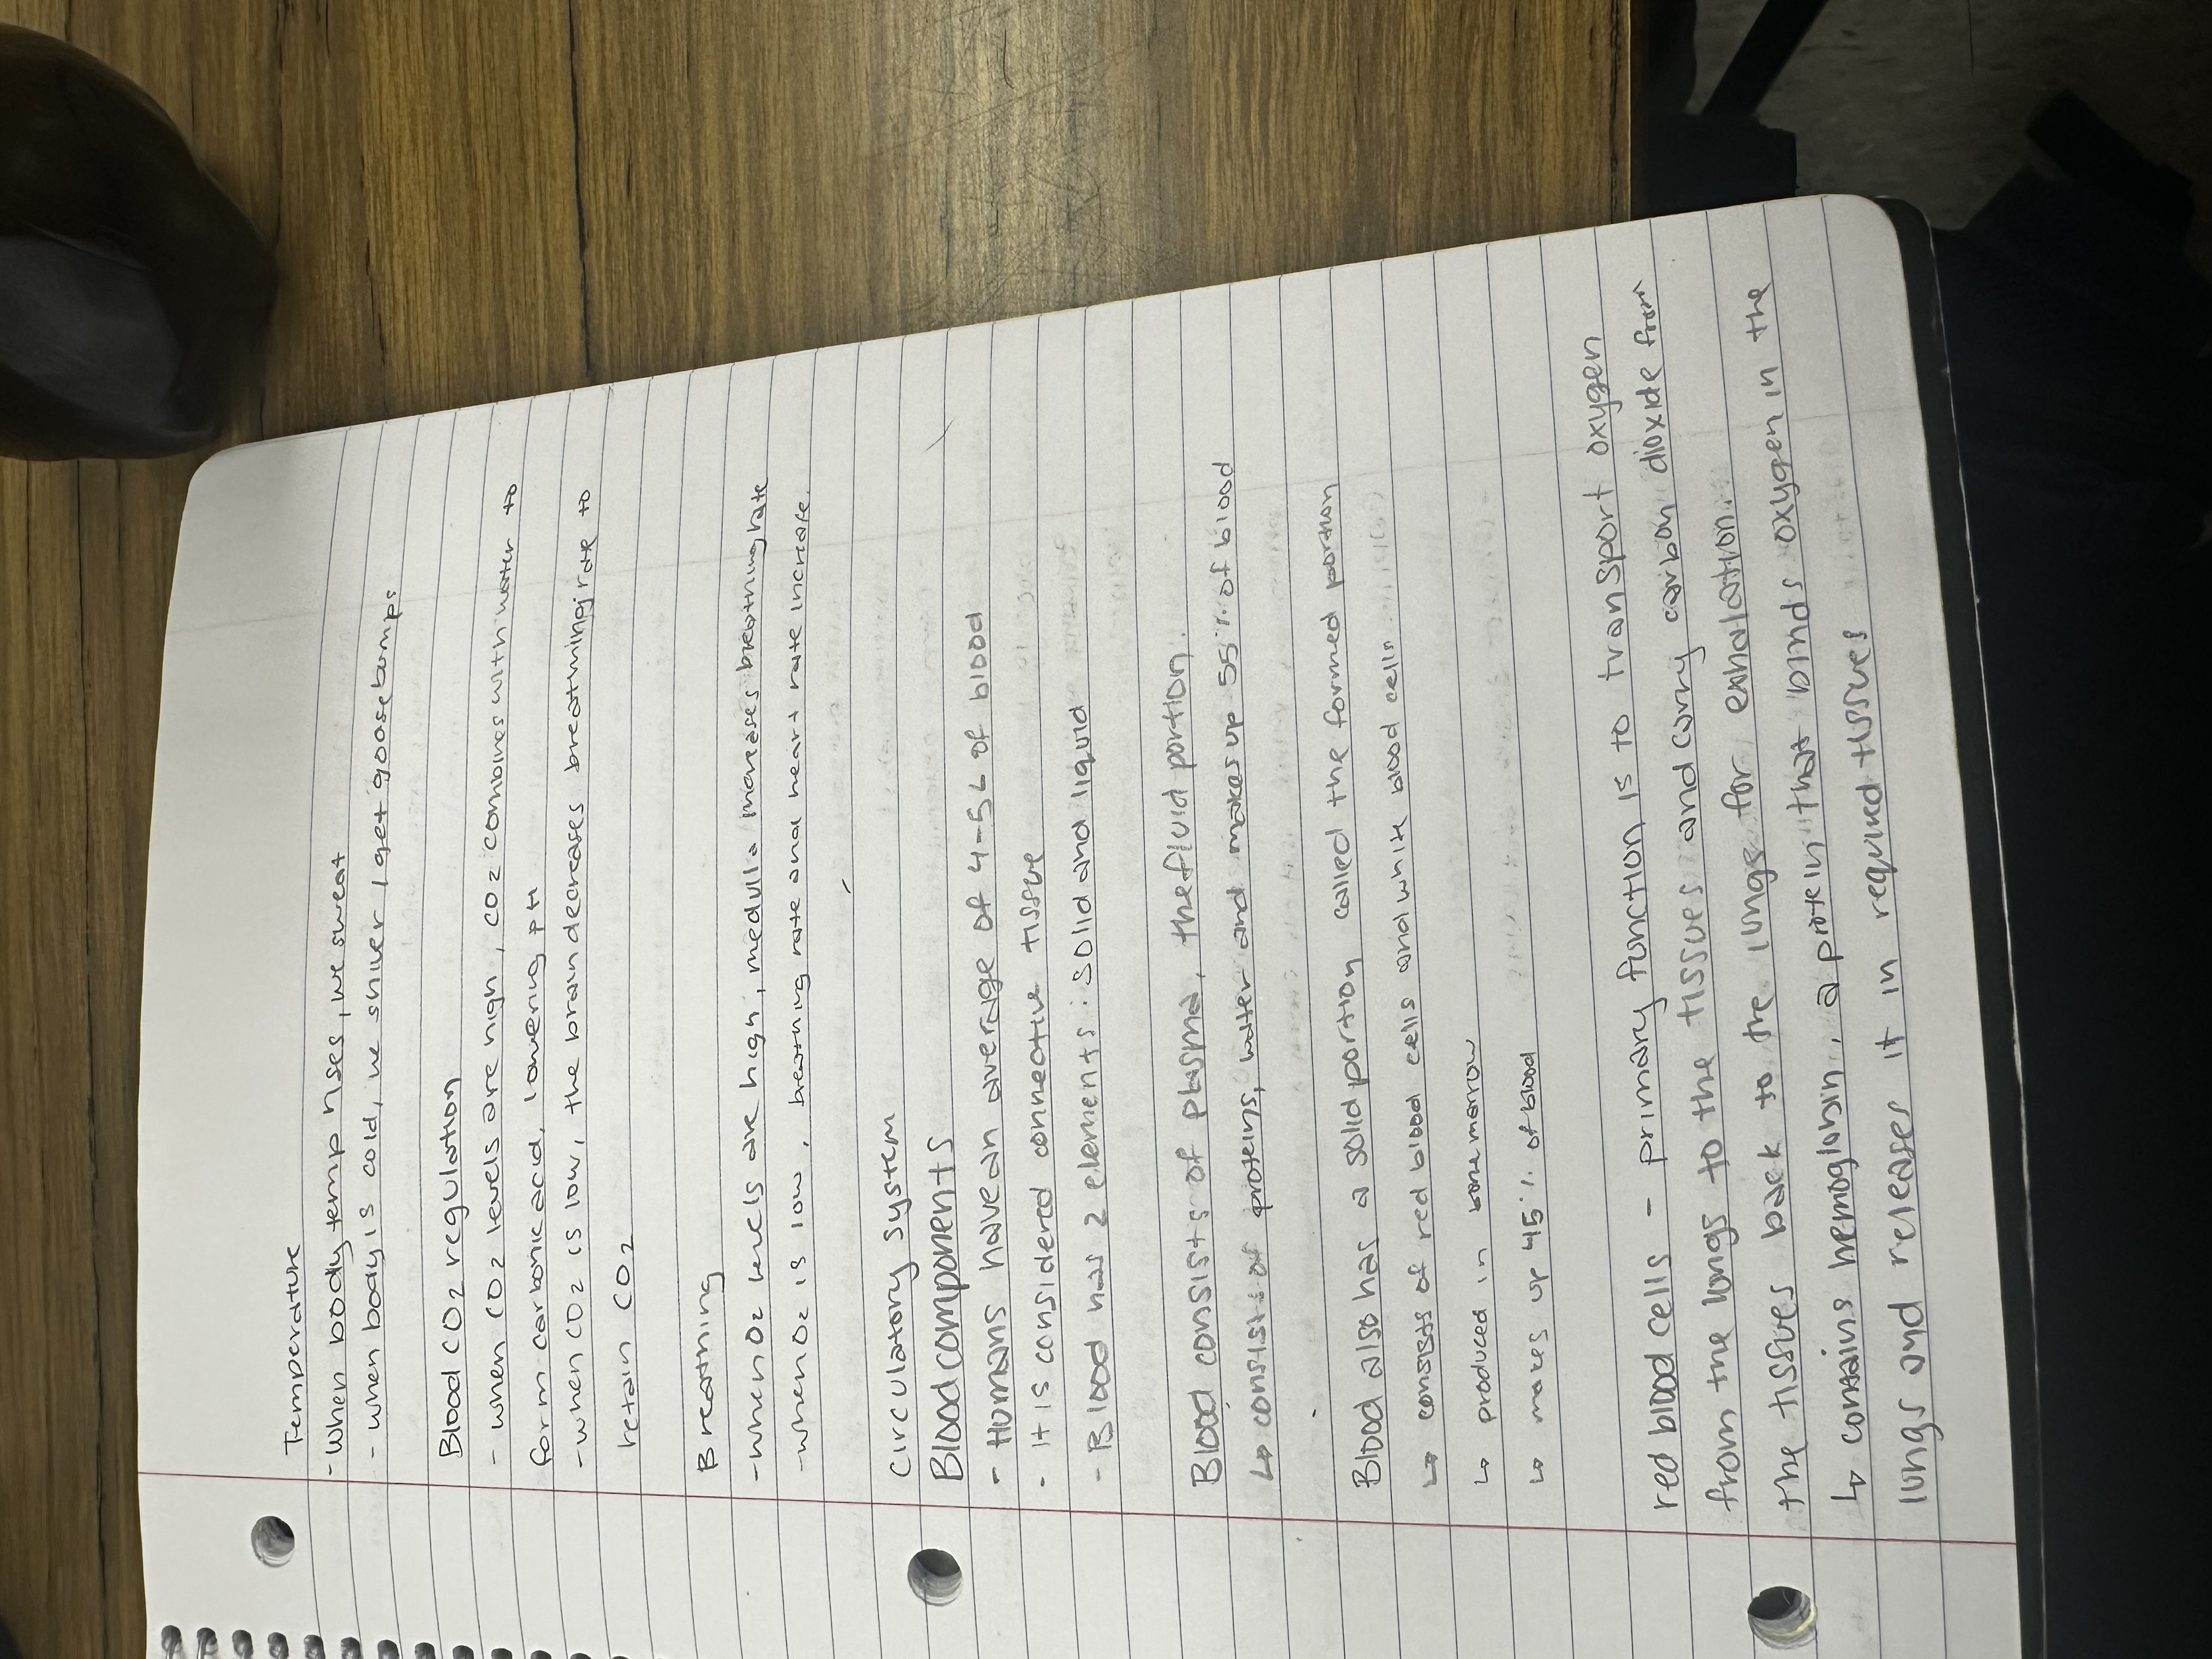 Temperature
- When body temp rises, we sweat
- when body is cold, we shiver / get goosebumps
Blood CO2 regulation
- when CO2 levels are high, CO2 combines with water to
form carbonic acid, lowering pH
- when CO2 is low, the brain decreases breathing rate to
retain CO2
Breathing
- when O2 levels are high, medulla increases breathing rate
- when O2 is low, breathing rate and heart rate increase.
Circulatory system
Blood components
- Humans have an average of 4-5L of blood
- It is considered connective tissue
- Blood has 2 elements: solid and liquid
Blood consists of plasma, the fluid portion.
↳ consists of proteins, water and makes up 55% of blood
Blood also has a solid portion called the formed portion
↳ consists of red blood cells and white blood cells
↳ produced in bone marrow
↳ makes up 45% of blood
red blood cells - primary function is to transport oxygen
from the lungs to the tissues and carry carbon dioxide from
the tissues back to the lungs for exhalation.
↳ contains hemoglobin, a protein that binds oxygen in the
lungs and releases it in required tissues